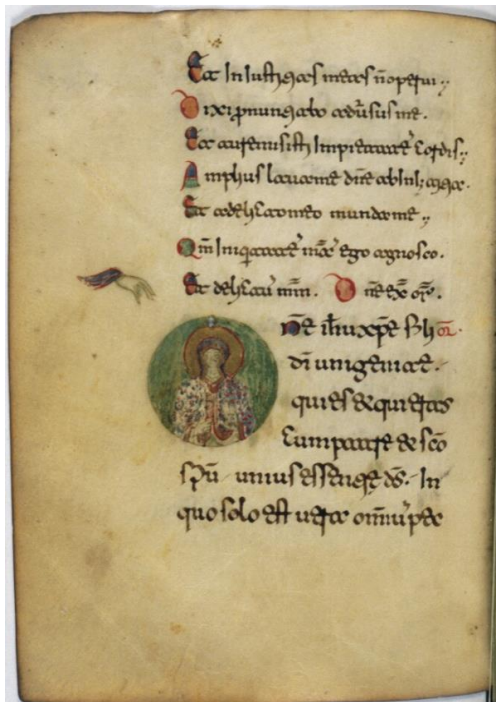 Et Iniustitias meas n̄ operui
Dixi pronuntiabo adūsus me.
Et tu remisisti Impietatē cordis
Amplius laua me dn̄e ab Iniustitia mea.
Et a delicto meo munda me
Qm̄ Iniquitatē meā ego agnosco.
Et delictū mm̄. Dn̄e ex̄ or̄.
Dn̄e ih̄u xp̄e fili or̄
dī unigenite.
qui es & qui eras
cum patre & sc̄o
sp̄u unius essentie ds̄. In
quo solo est uera omniū pec